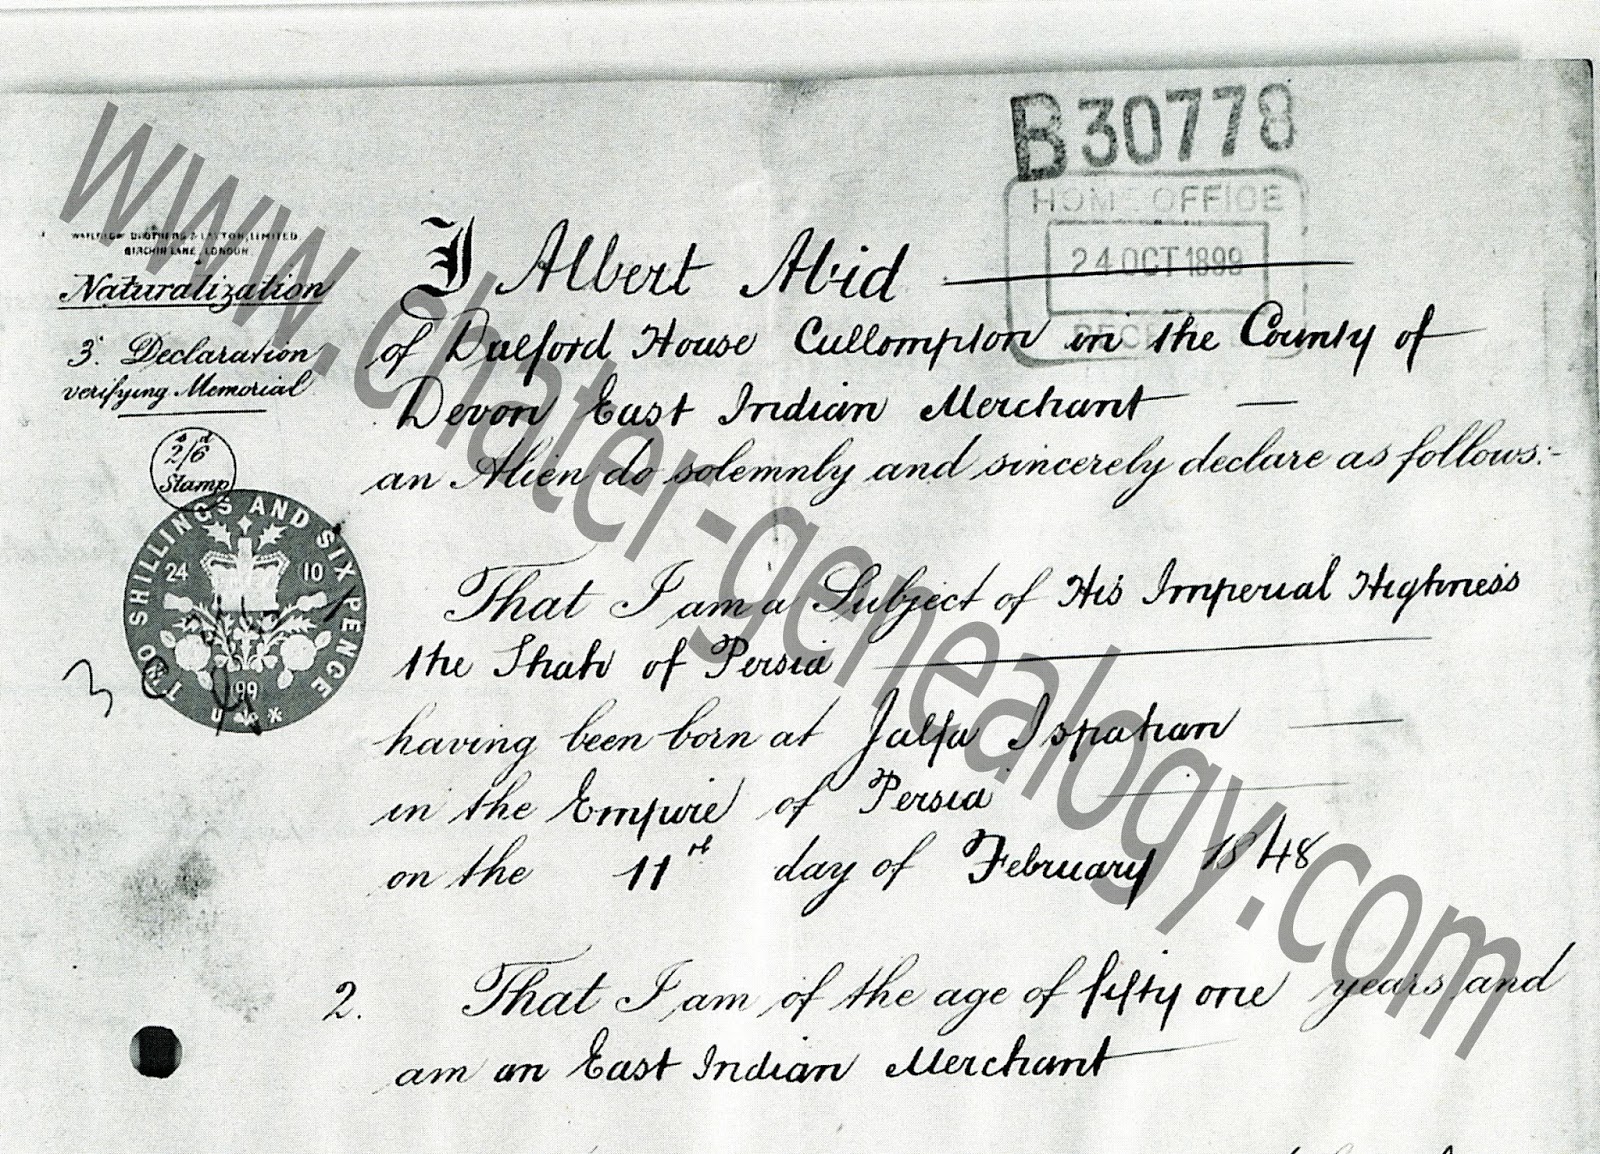 B30778
HOME OFFICE
24 OCT 1899
WATERLOW BROTHERS & LAYTON, LIMITED
BIRCHIN LANE, LONDON
Naturalization
3. Declaration
verifying Memorial
2/6
s d
Stamp
TWO SHILLINGS AND SIX PENCE
24 10
99
I Albert Abid
of Dulford House Cullompton in the County of
Devon East Indian Merchant
an Alien do solemnly and sincerely declare as follows:-
That I am a Subject of His Imperial Highness
the Shah of Persia
having been born at Julfa Ispahan
in the Empire of Persia
on the 11th day of February 1848
2. That I am of the age of fifty one years and
am an East Indian Merchant
www.chater-genealogy.com